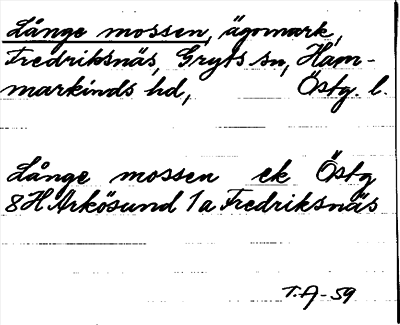 Långe mossen, ägomark,
Fredriksnäs, Gryts sn, Ham-
markinds hd, Östg. l.
Långe mossen ek Östg
8H Arkösund 1a Fredriksnäs
T.A-59